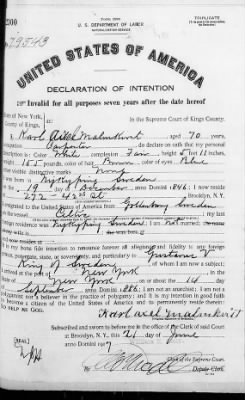 Form 2203
TRIPLICATE
U. S. DEPARTMENT OF LABOR
NATURALIZATION SERVICE
UNITED STATES OF AMERICA
DECLARATION OF INTENTION
Invalid for all purposes seven years after the date hereof
State of New York,
County of Kings,
In the Supreme Court of Kings County.
I, Karl Axel Malmkvist aged 70 years,
occupation Carpenter do declare on oath that my personal
description is: Color White complexion Fair height 5 feet 11 inches,
weight 155 pounds, color of hair Brown color of eyes Blue
other visible distinctive marks None
I was born in Nykoping Sweden
on the 19 day of December anno Domini 1846; I now reside
at 272 42 St Brooklyn, N.Y.
I emigrated to the United States of America from Gothenburg Sweden
on the vessel
residence was Nykoping Sweden I am not married
It is my bona fide intention to renounce forever all allegiance and fidelity to any foreign
prince, potentate, state, or sovereignty, and particularly to Gustavus V
King of Sweden of whom I am now a subject;
I arrived at the port of New York in the
State of New York on or about the 14 day
of September anno Domini 1886; I am not an anarchist; I am not a
polygamist nor a believer in the practice of polygamy; and it is my intention in good faith
to become a citizen of the United States of America and to permanently reside therein:
SO HELP ME GOD.
Karl Axel Malmkvist
Subscribed and sworn to before me in the office of the Clerk of said Court
at Brooklyn, N.Y., this 21 day of June
anno Domini 191
[SEAL]
Clerk of the Supreme Court.
Deputy Clerk.